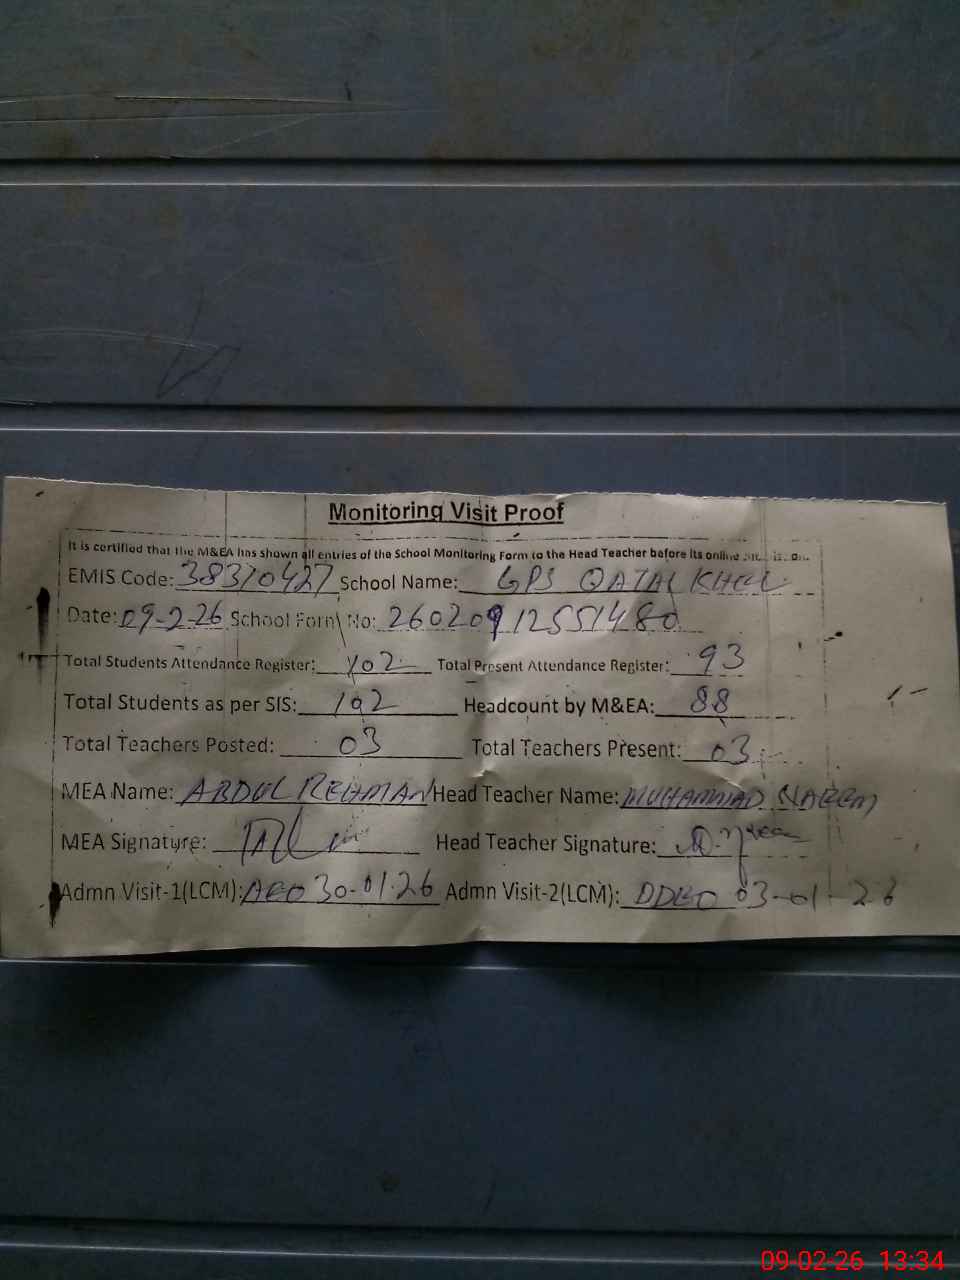 Monitoring Visit Proof
It is certified that the M&EA has shown all entries of the School Monitoring Form to the Head Teacher before its online
EMIS Code: 38310427 School Name: GPS QATAL KHEL
Date: 09-2-26 School Form No: 26020912551480
Total Students Attendance Register: 102 Total Present Attendance Register: 93
Total Students as per SIS: 102 Headcount by M&EA: 88
Total Teachers Posted: 03 Total Teachers Present: 03
MEA Name: ABDUL REHMAN Head Teacher Name: MUHAMMAD NAEEM
MEA Signature: Head Teacher Signature:
Admn Visit-1(LCM): AEO 30-01-26 Admn Visit-2(LCM): DDEO 03-01-26
09-02-26 13:34